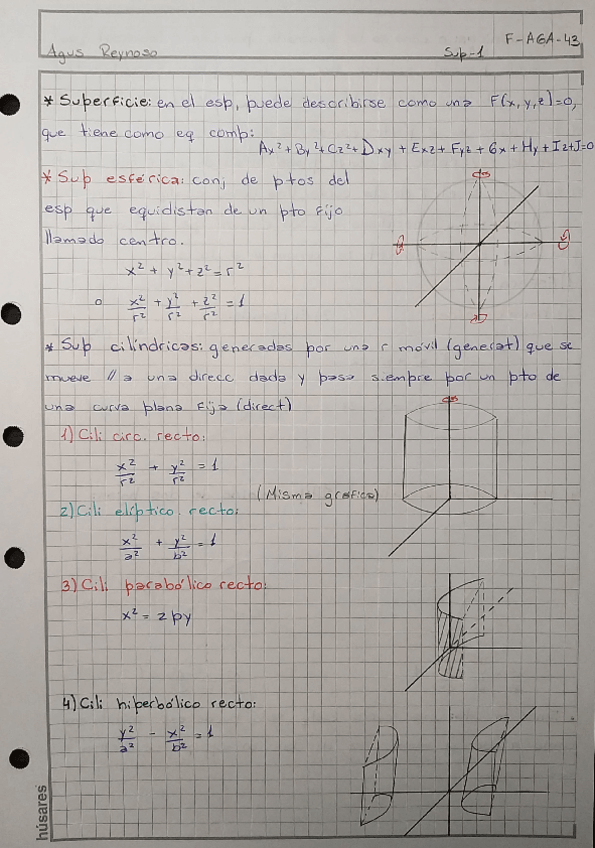 F-AGA-43
Agus Reynoso Sup-1
* Superficie: en el esp, puede describirse como una F(x,y,z)=0,
que tiene como eq comp:
Ax²+By²+Cz²+Dxy+Exz+Fyz+Gx+Hy+Iz+J=0
* Sup esférica: conj de ptos del
esp que equidistan de un pto fijo
llamado centro.
x² + y² + z² = r²
o x²/r² + y²/r² + z²/r² = 1
* Sup cilíndricas: generadas por una r móvil (generat) que se
mueve // a una direcc dada y pasa siempre por un pto de
una curva plana fija (direct)
1) Cili circ. recto:
x²/r² + y²/r² = 1
(Misma gráfica)
2) Cili elíptico. recto:
x²/a² + y²/b² = 1
3) Cili parabólico recto:
x² = 2py
4) Cili hiperbólico recto:
y²/a² - x²/b² = 1
húsares